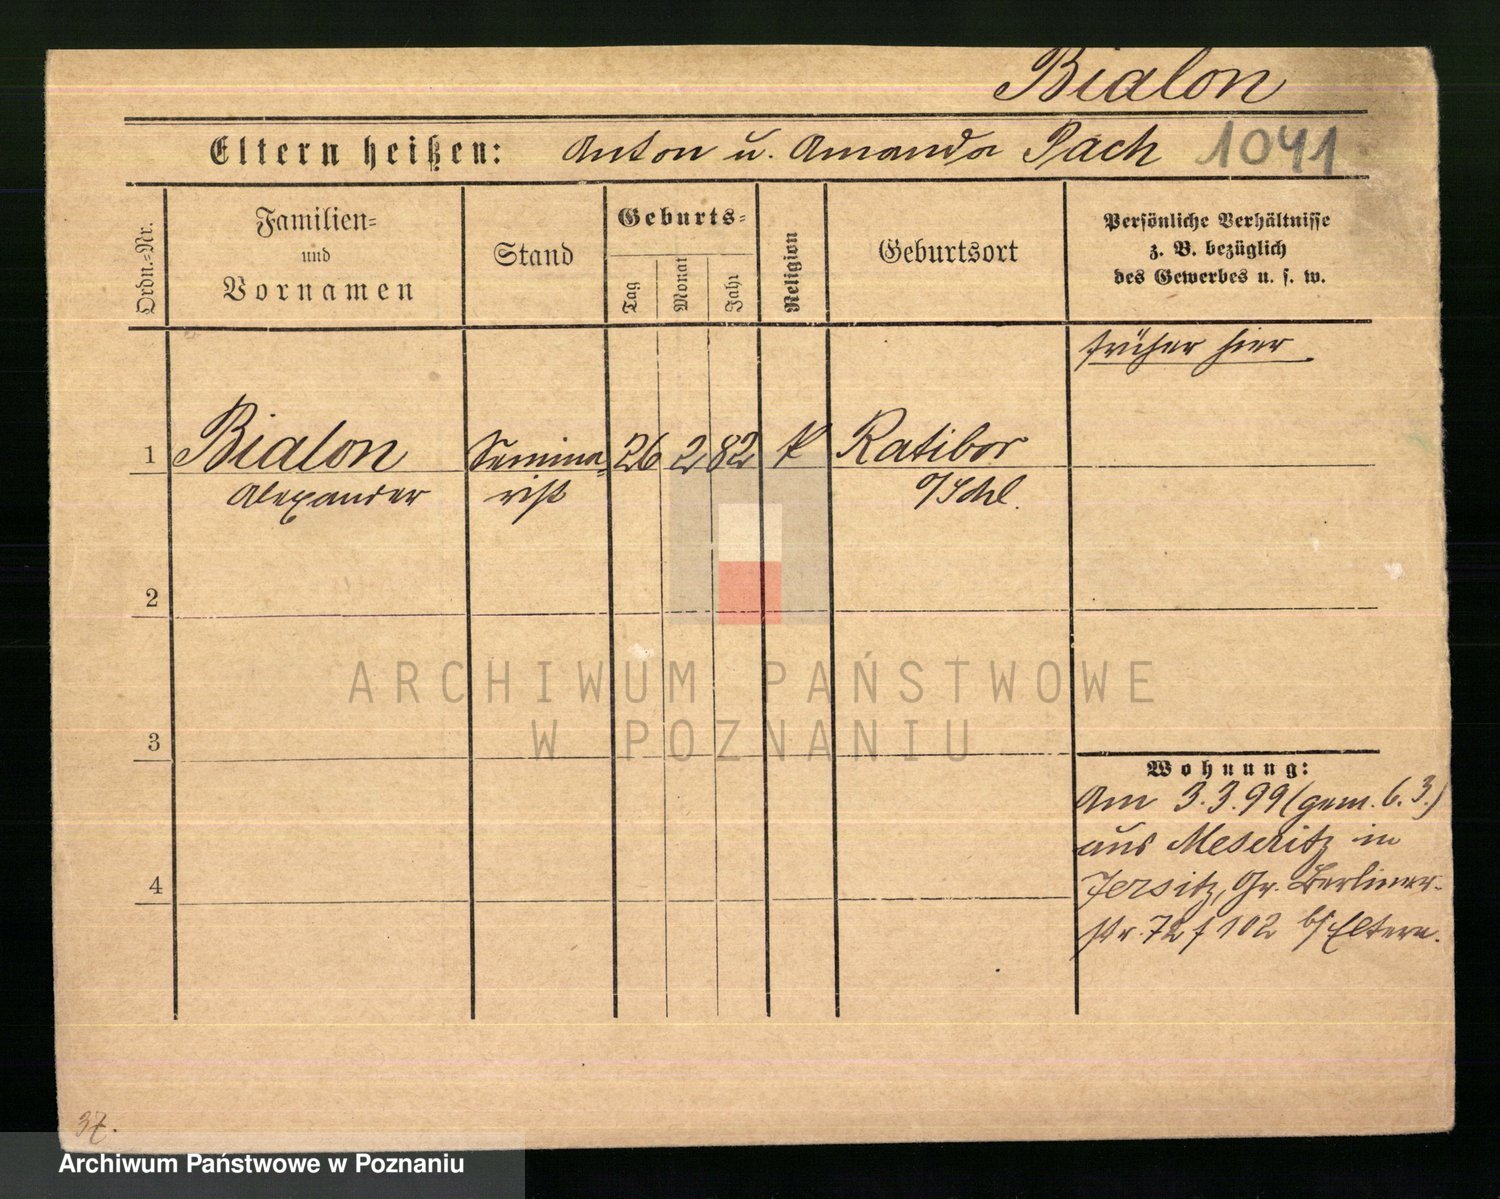 Bialon
Eltern heißen: Anton u. Amanda Pach 1041
Ordn.-Nr.
Familien-
und
Vornamen
Stand
Geburts-
Tag
Monat
Jahr
Religion
Geburtsort
Persönliche Verhältnisse
z. B. bezüglich
des Gewerbes u. s. w.
früher hier
1 Bialon Semina- 26 2 82 k Ratibor
Alexander rist O/Schl.
2
3
4
Wohnung:
Am 3.3.99 (gem. 6.3.)
aus Meseritz in
Jersitz, Gr. Berliner-
str. 72 f 102 b/Eltern.
37.
ARCHIWUM PAŃSTWOWE
W POZNANIU
Archiwum Państwowe w Poznaniu